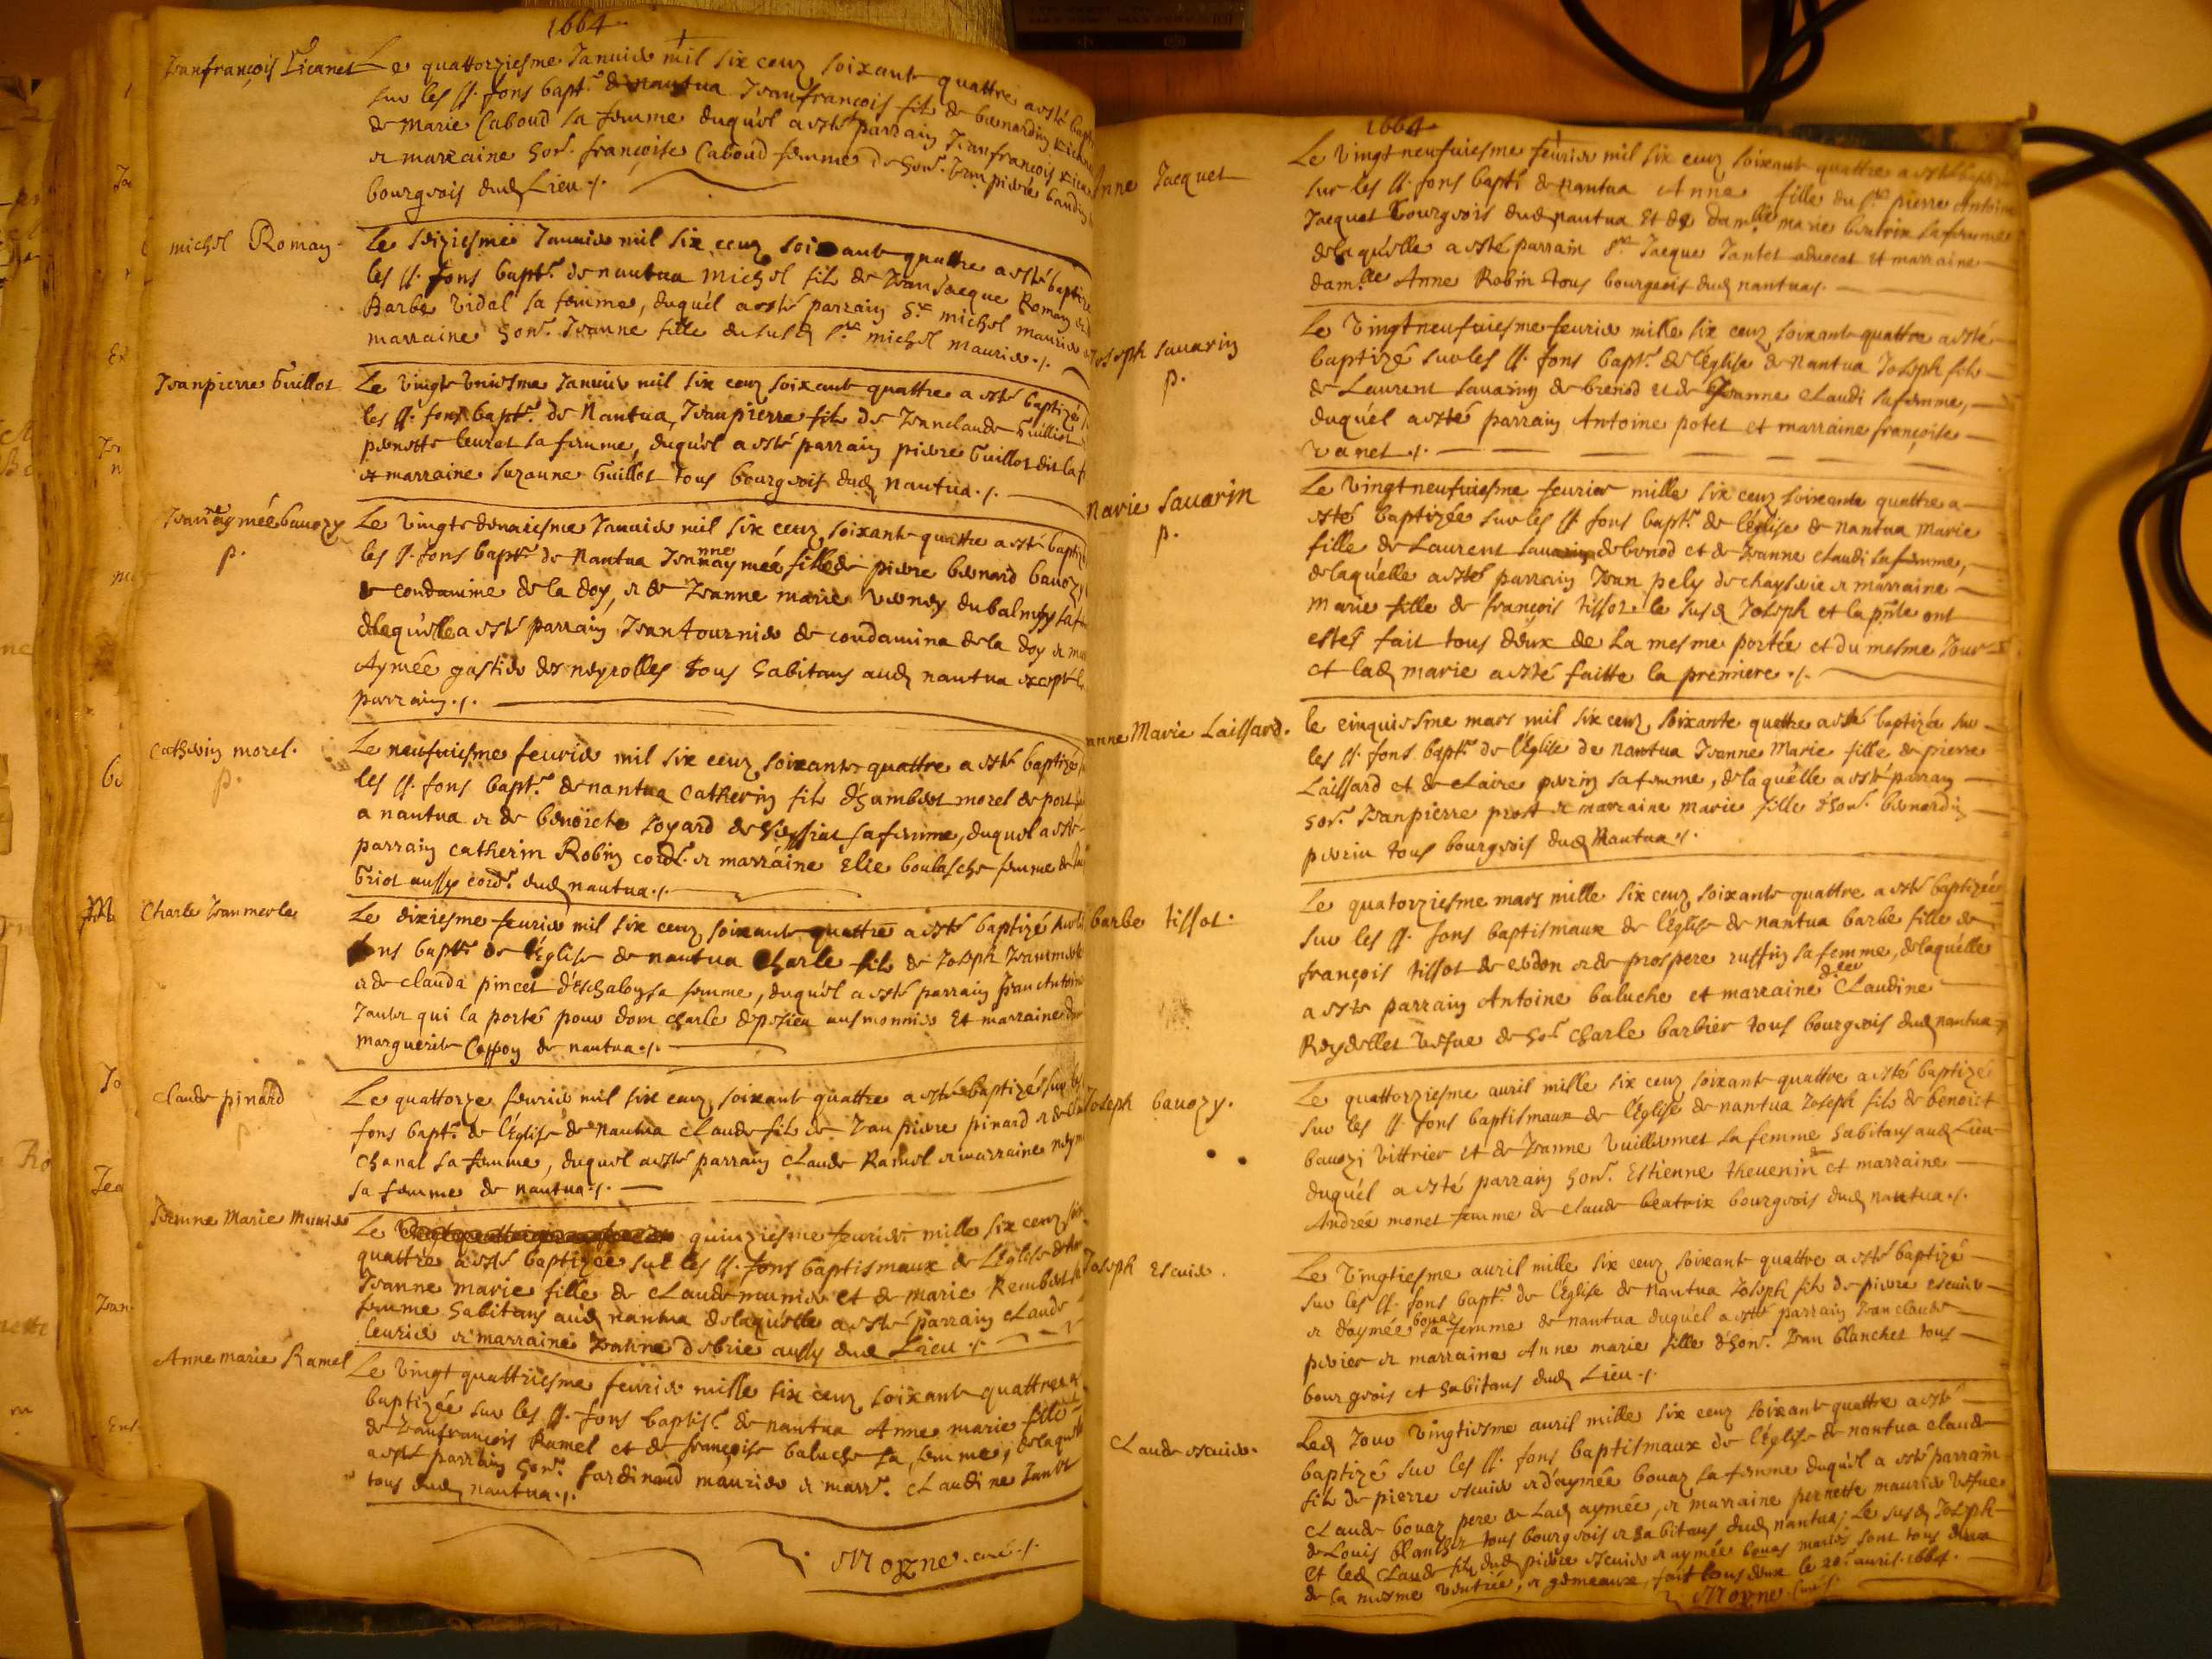 1664
Jeanfrançois Ricanet
Le quattorziesme Januier mil six cens soixante quattre a esté bapt
sur les ss. fons bapt. de nantua Jeanfrançois fils de bernardin
de Marie Caboud sa femme duquel a esté parrain Jeanfrançois
et marraine hon. françoise Caboud femme de hon. Jean pierre baudin
bourgeois dud Lieu ./.
michel Roman
Le seiziesme Januier mil six cens soixante quattre a esté baptizé
les ss. fons bapt. de nantua michel fils de Jean Jacque Roman et
Barbe Vidal sa femme, duquel a esté parrain Sr michel maurier
marraine hon. Jeanne fille du susd Sr michel maurier ./.
Jeanpierre Guillot
Le vingt vniesme Januier mil six cens soixante quattre a esté baptizé
les ss. fons bapt. de Nantua, Jeanpierre fils de Jeanclaude Guilliot
pernette leuret sa femme, duquel a esté parrain pierre Guillot dit la
et marraine suzanne Guillot tous bourgeois dud nantua ./.
Jeanneaymée bauozy
p.
Le vingt deuxiesme Januier mil six cens soixante quattre a esté baptizé
les ss. fons bapt. de Nantua Jeanneaymée fille de pierre bernard bauozy
de condamine de la doy, et de Jeanne marie du balmey sa
delaquelle a esté parrain Jean fournier de condamina de la doy et
Aymée gastier des neyrolles tous habitans aud nantua excepté le
parrain ./.
Catherin morel.
p.
Le neufuiesme feurier mil six cens soixante quattre a esté baptizé
les ss. fons bapt. de nantua Catherin fils d'hambert morel de port
a nantua et de benoicte Joyard de sa femme, duquel a esté
parrain catherin Robin cord. et marraine Elie boulasche femme de
Griot aussy cord. dud nantua ./.
Charle Jeanmerle
Le dixiesme feurier mil six cens soixante quattre a esté baptizé sur les
fons bapt. de l'Eglise de nantua Charle fils de Joseph Jeanmerle
et de clauda pincet d'Eschalon sa femme, duquel a esté parrain Jean Antoine
Jantet qui la porté pour dom charle depezieu ausmonnier Et marraine
marguerite Coppon de nantua ./.
Claude pinard
p
Le quattorze feurier mil six cens soixante quattre a esté baptizé sur les
fons bapt. de l'Eglise de Nantua Claude fils de Jean pierre pinard et de
Chanal sa femme, duquel a esté parrain Claude Ramel et marraine
sa femme de nantua ./.
Jeanne Marie Munier
Le quinziesme feurier mille six cens
quattre a esté baptizée sur les ss. fons baptismaux de l'Eglise de
Jeanne marie fille de Claude munier et de marie Rembert
femme habitans aud nantua delaquelle a esté parrain Claude
leurier et marraine debrie aussy dud Lieu ./.
Anne marie Ramel
Le vingt quattriesme feurier mille six cens soixante quattre a
baptizée sur les ss. fons baptis. de nantua Anne marie fille
de Jeanfrançois Ramel et de françoise baluche sa femme, delaquelle
a esté parrain hon. fardinand maurier et marr. Claudine Jantet
tous dud nantua ./.
Moyne. curé ./.
1664
Anne Jacquet
Le vingtneufuiesme feurier mil six cens soixante quattre a esté baptizée
sur les ss. fons bapt. de Nantua Anne fille du Sr pierre Antoine
Jacquet Bourgeois dud nantua Et de dam.lle marie sa femme
delaquelle a esté parrain Sr Jacque Jantet aduocat et marraine
dam.lle Anne Robin tous bourgeois dud nantua ./.
Joseph Sauarin
p.
Le Vingtneufuiesme feurier mille six cens soixante quattre a esté
baptizé sur les ss. fons bapt. de l'église de Nantua Joseph fils
de Laurent Sauarin de brenod et de Jeanne Claudi sa femme,
duquel a esté parrain Antoine potet et marraine françoise
vanet ./.
Marie Sauarin
p.
Le Vingtneufuiesme feurier mille six cens soixante quattre a
esté baptizée sur les ss. fons bapt. de l'église de nantua Marie
fille de Laurent Sauarin de brenod et de Jeanne Claudi sa femme,
delaquelle a esté parrain Jean pely de et marraine
Marie fille de françois tissot le susd Joseph et la pnte ont
estés fait tous deux de la mesme portée et du mesme Jour
et lad marie a esté faitte la premiere ./.
Jeanne Marie Laissard.
le cinquiesme mars mil six cens soixante quattre a esté baptizée sur
les ss. fons bapt. de l'Eglise de nantua Jeanne Marie fille de pierre
Laissard et de Claire perrin sa femme, delaquelle a esté parrain
hon. Jeanpierre prost et marraine marie fille d'hon. bernardin
perrin tous bourgeois dud Nantua ./.
barbe tissot.
Le quatorziesme mars mille six cens soixante quattre a esté baptizée
sur les ss. fons baptismaux de l'église de nantua barbe fille de
françois tissot de et de prospere ruffin sa femme, delaquelle
a esté parrain Antoine baluche et marraine Claudine
Reydellet vefue de hon. charle barbier tous bourgeois dud nantua
Joseph bauozy.
Le quattorziesme auril mille six cens soixante quattre a esté baptizé
sur les ss. fons baptismaux de l'église de nantua Joseph fils de benoict
bauozi vittrier et de Jeanne Vuillermet sa femme habitans aud Lieu
duquel a esté parrain hon. Estienne theuenin et marraine
Andrée monet femme de claude beatrix bourgeois dud nantua ./.
Joseph escuier.
Le Vingtiesme auril mille six cens soixante quattre a esté baptizé
sur les ss. fons bapt. de l'église de Nantua Joseph fils de pierre escuier
et d'aymée bouaz sa femme de nantua duquel a esté parrain Jean claude
perier et marraine Anne marie fille d'hon. Jean blanchet tous
bourgeois et habitans dud Lieu ./.
Claude escuier.
Led Jour Vingtiesme auril mille six cens soixante quattre a esté
baptizé sur les ss. fons baptismaux de l'église de nantua claude
fils de pierre escuier et d'aymée bouaz sa femme duquel a esté parrain
Claude bouaz pere de lad aymée, et marraine pernette maurier vefue
de Louis blanchet tous bourgeois et habitans dud nantua; Le susd Joseph
et led Claude fils dud pierre escuier et aymée bouaz mariés sont tous deux
de la mesme ventrée, et gemeaux, fait tous deux le 20e auril 1664.
Moyne Curé ./.